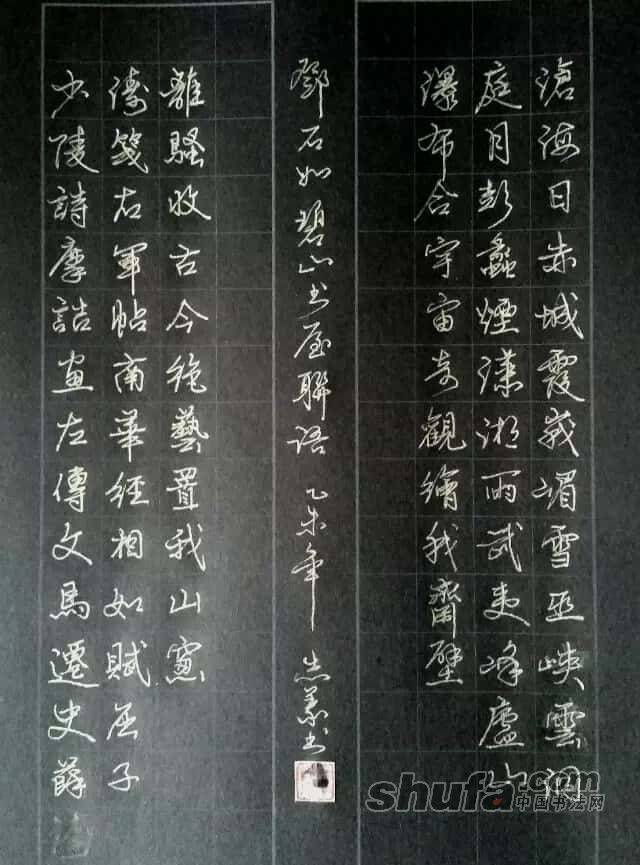 滄海日赤城霞峩嵋雪巫峽雲洞
庭月彭蠡煙瀟湘雨武夷峰廬山
瀑布合宇宙奇觀繪我齋壁
少陵詩摩詰畫左傳文馬遷史薛
濤箋右軍帖南華經相如賦屈子
離騷收古今絶藝置我山窻
鄧石如碧山书屋聯語 乙未年 书
shufa.com
中国书法网